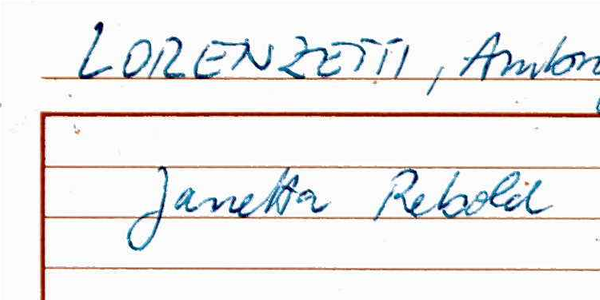 LORENZETTI, Ambro
Janetta Rebold